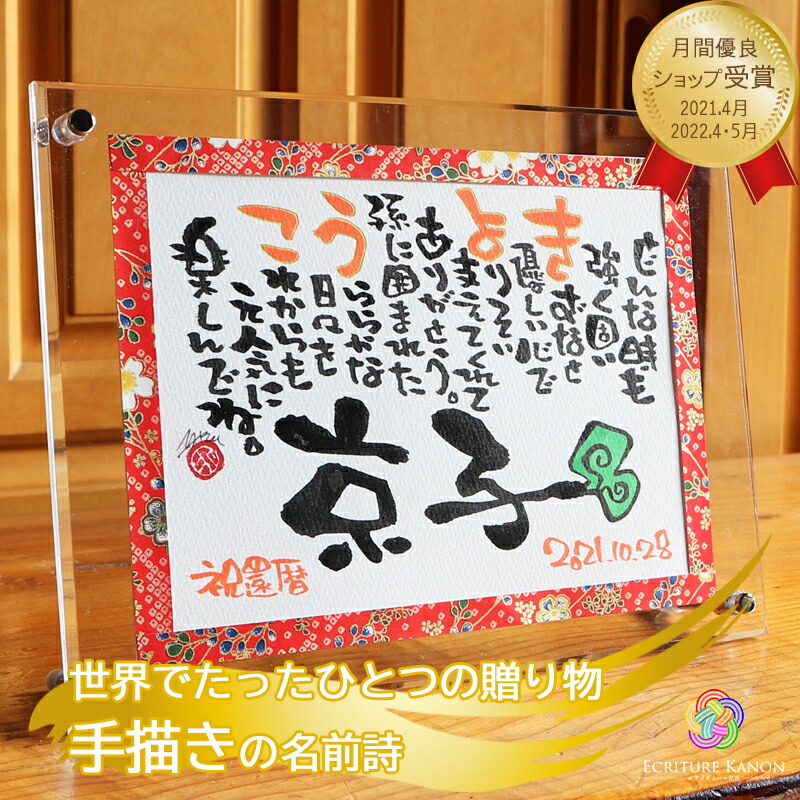 月間優良
ショップ受賞
2021.4月
2022.4・5月
どんな時も
強く固い
きずなと
優しい心で
よりそい
ささえてくれて
ありがとう。
孫に囲まれた
うららかな
日々を
これからも
元気に
楽しんでね。
京子
祝還暦
2021.10.28
世界でたったひとつの贈り物
手描きの名前詩
ECRITURE KANON